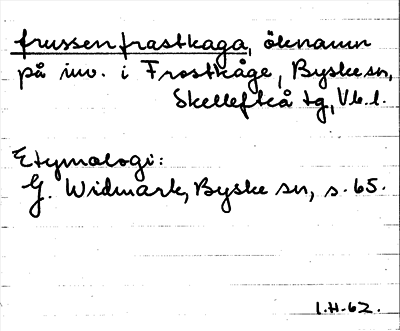 frussenfrastkaga, öknamn
på inv. i Frostkåge, Byske sn,
Skellefteå tg, Vb. l.
Etymologi:
G. Widmark, Byske sn, s. 65.
I.H-62.